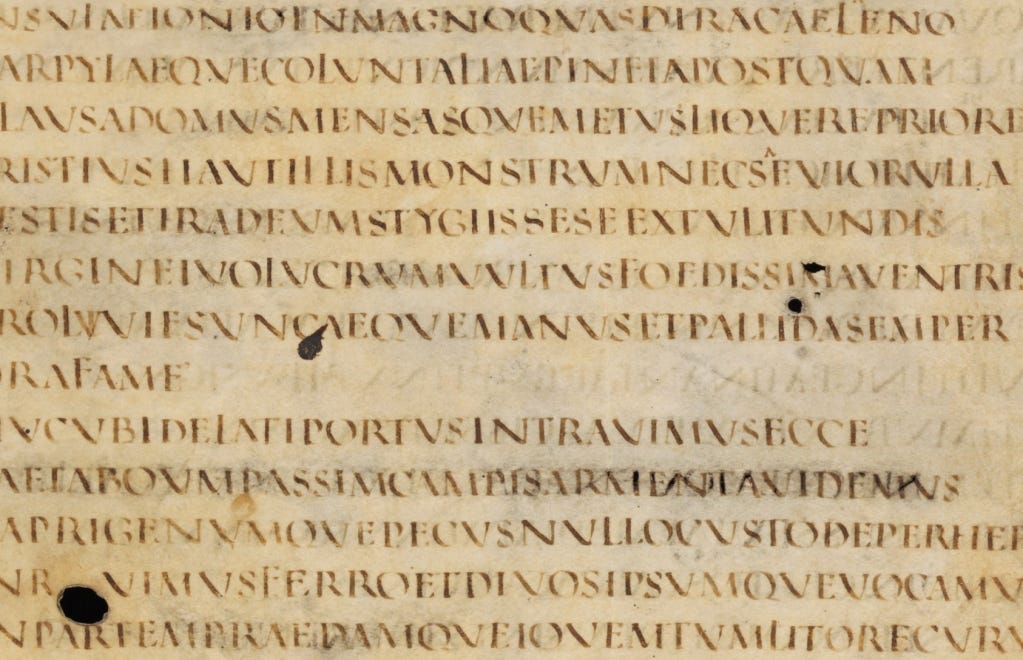 NSVLAEIONIOINMAGNOQVASDIRACAELENO
ARPYIAEQVECOLVNTALIAEPINEIAPOSTQVAM
LAVSADOMVSMENSASQVEMETVSLIQVEREPRIORE
RISTIVSHAVTILLISMONSTRVMNECSEVIORVLLA
ESTISETIRADEVMSTYGIISSESEEXTVLITVNDIS
IRGINEIVOLVCRVMVVLTVSFOEDISSIMAVENTRIS
ROLVVIESVNCAEQVEMANVSETPALLIDASEMPER
ORAFAME
VCVBIDELATIPORTVSINTRAVIMVSECCE
AETABOVMPASSIMCAMPISARMENTAVIDEMVS
APRIGENVMQVEPECVSNVLLOCVSTODEPERHER
NR VIMVSFERROETDIVOSIPSVMQVEVOCAMV
NPARTEMPRAEDAMQVEIOVEMTVMLITORECVRV